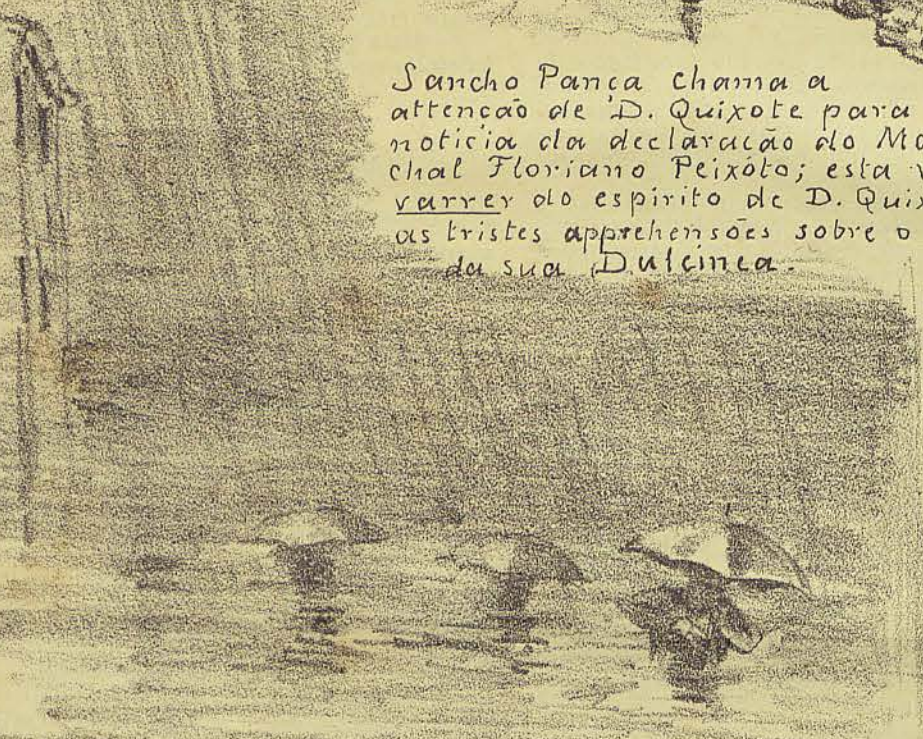 Sancho Pança chama a
attenção de D. Quixote para
noticia da declaração do Ma
chal Floriano Peixôto; esta v
varrer do espirito de D. Quix
as tristes apprehensões sobre o
da sua Dulcinea.